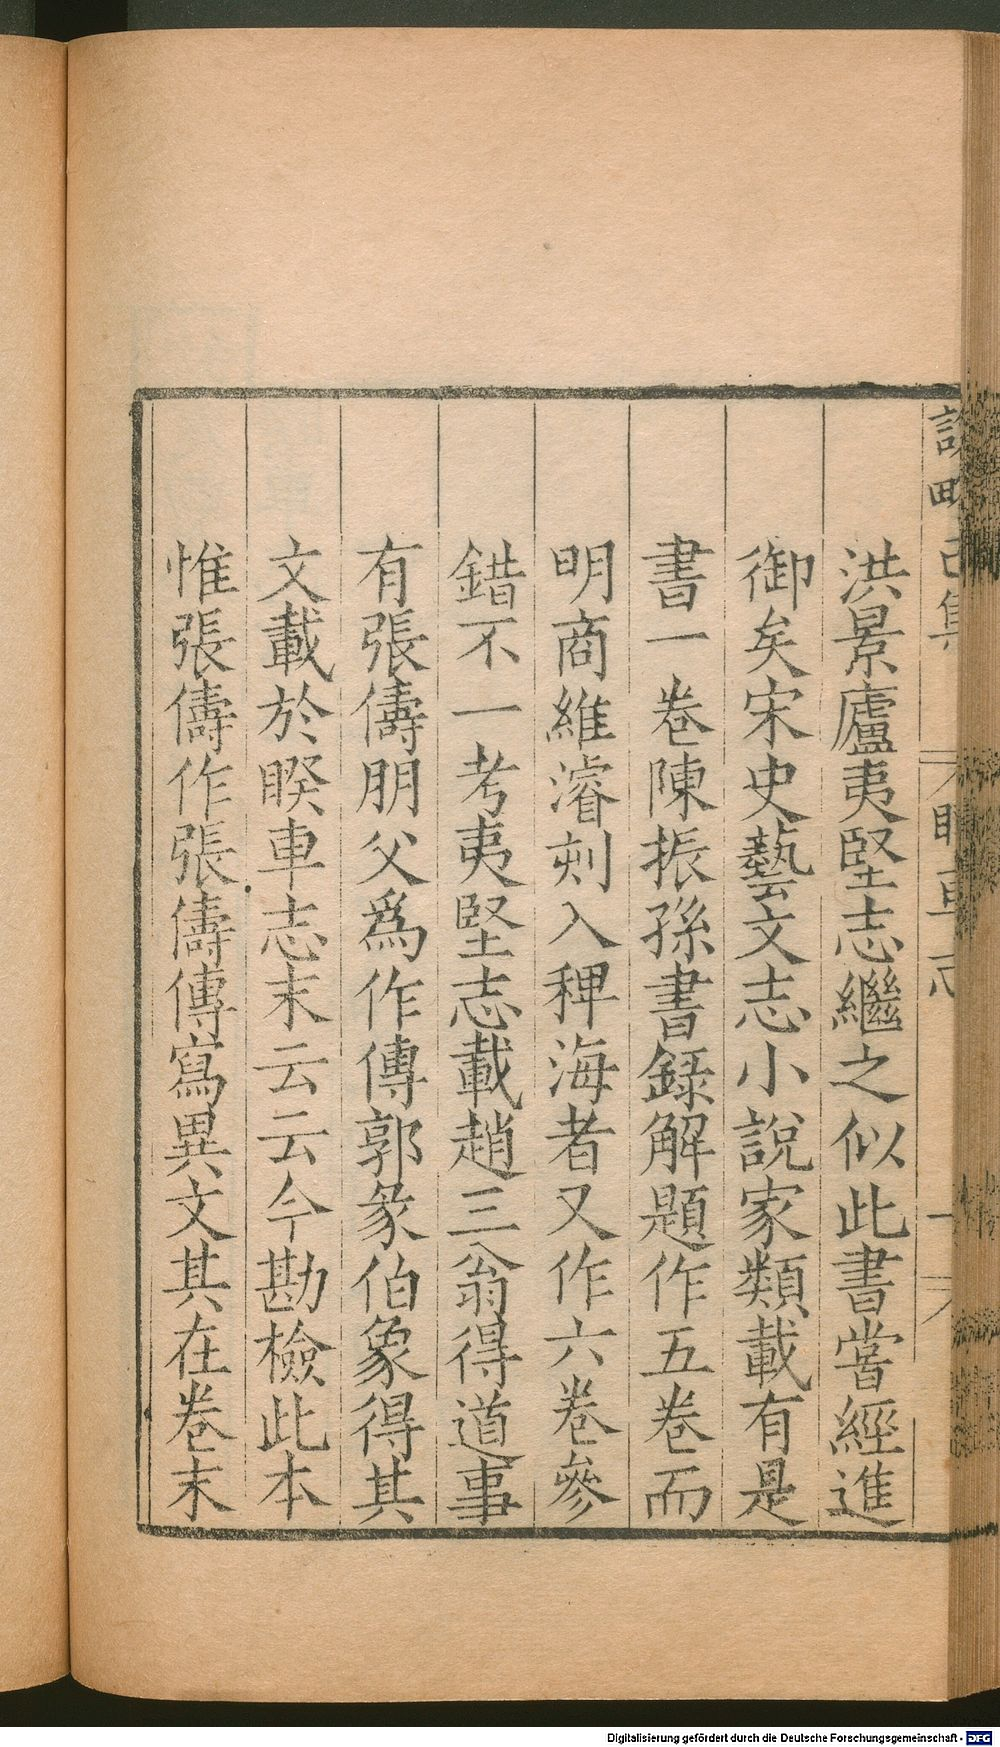 洪景廬夷堅志繼之似此書嘗經進
御矣宋史藝文志小說家類載有是
書一卷陳振孫書錄解題作五卷而
明商維濬刻入稗海者又作六卷參
錯不一考夷堅志載趙三翁得道事
有張儔朋父爲作傳郭彖伯象得其
文載於睽車志末云云今勘檢此本
惟張儔作張儔傳寫異文其在卷末
Digitalisierung gefördert durch die Deutsche Forschungsgemeinschaft - DFG